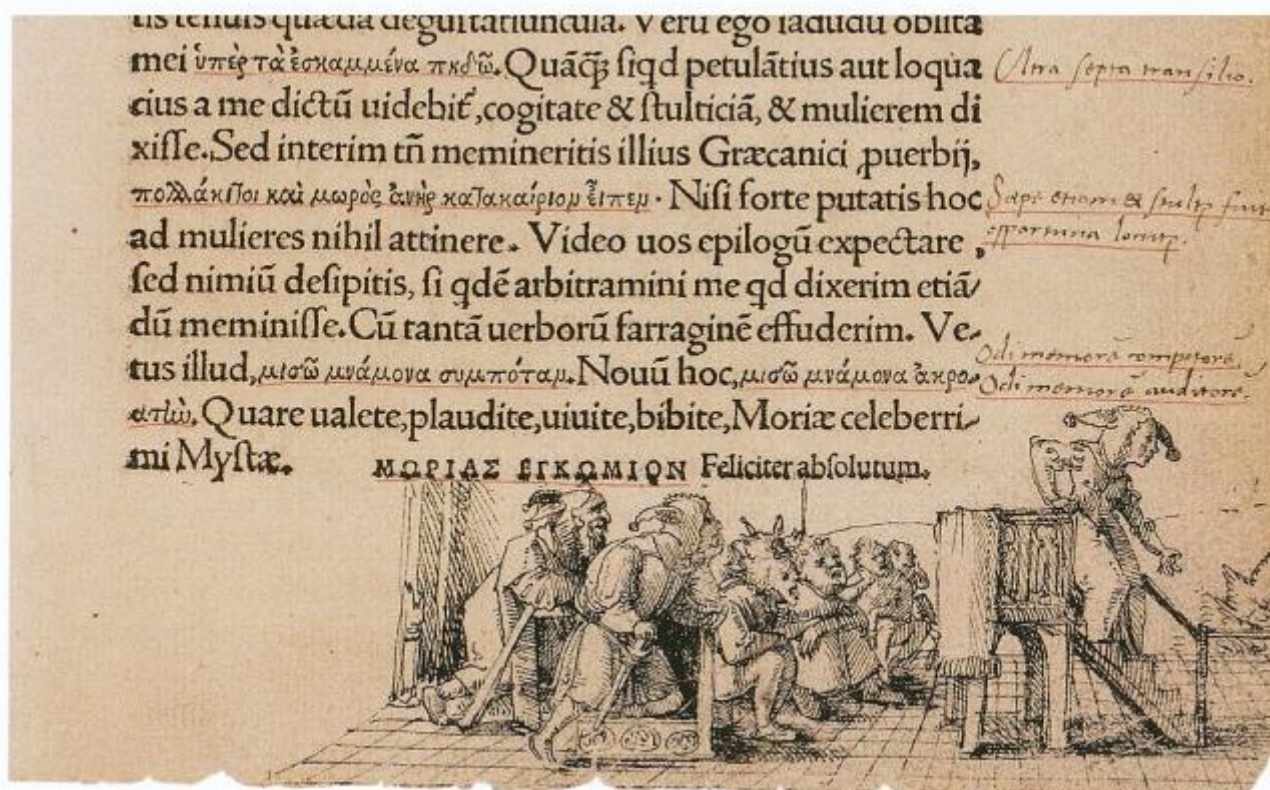 tis tenuis quædā degustatiuncula. Verū ego iādudū oblita
mei ὑπὲρ τὰ ἐσκαμμένα πκδῶ. Quāq̄ȝ siqd petulātius aut loqua
cius a me dictū uidebit̃, cogitate & stulticiā, & mulierem di
xisse. Sed interim tñ memineritis illius Græcanici ꝓuerbij,
πολλάκι τοι καὶ μωρὸς ἀνὴρ κατακαίριον εἶπεν. Nisi forte putatis hoc
ad mulieres nihil attinere. Video uos epilogū expectare,
sed nimiū desipitis, si qdē arbitramini me qd dixerim etiā/
dū meminisse. Cū tantā uerborū farraginē effuderim. Ve-
tus illud, μισῶ μνάμονα συμπόταν. Nouū hoc, μισῶ μνάμονα ἀκρο-
ατἰω. Quare ualete, plaudite, uiuite, bibite, Moriæ celeberri-
mi Mystæ.
ΜΩΡΙΑΣ ΕΓΚΩΜΙΟΝ Feliciter absolutum.
Ultra septa transilio.
Sæpe etiam
opportuna
Odi memorē compotorē.
Odi memorē auditorē.